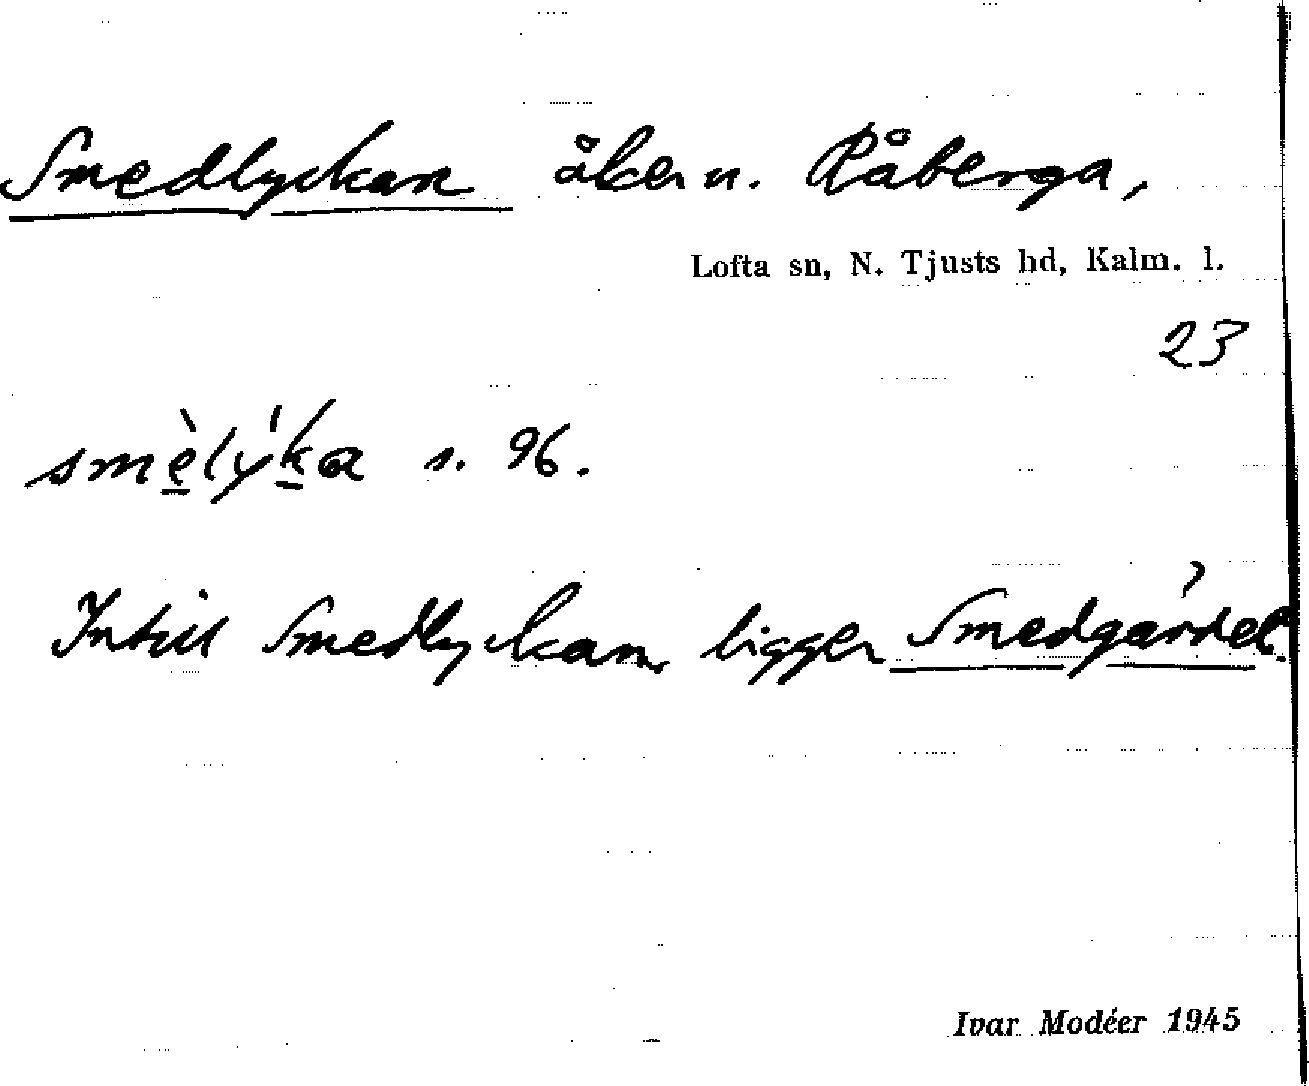 Smedlyckan åker u. Råberga,
Lofta sn, N. Tjusts hd, Kalm. l.
23
smè̱lýḵa s. 96.
Intill Smedlyckan ligger Smedgärdet.
Ivar Modéer 1945